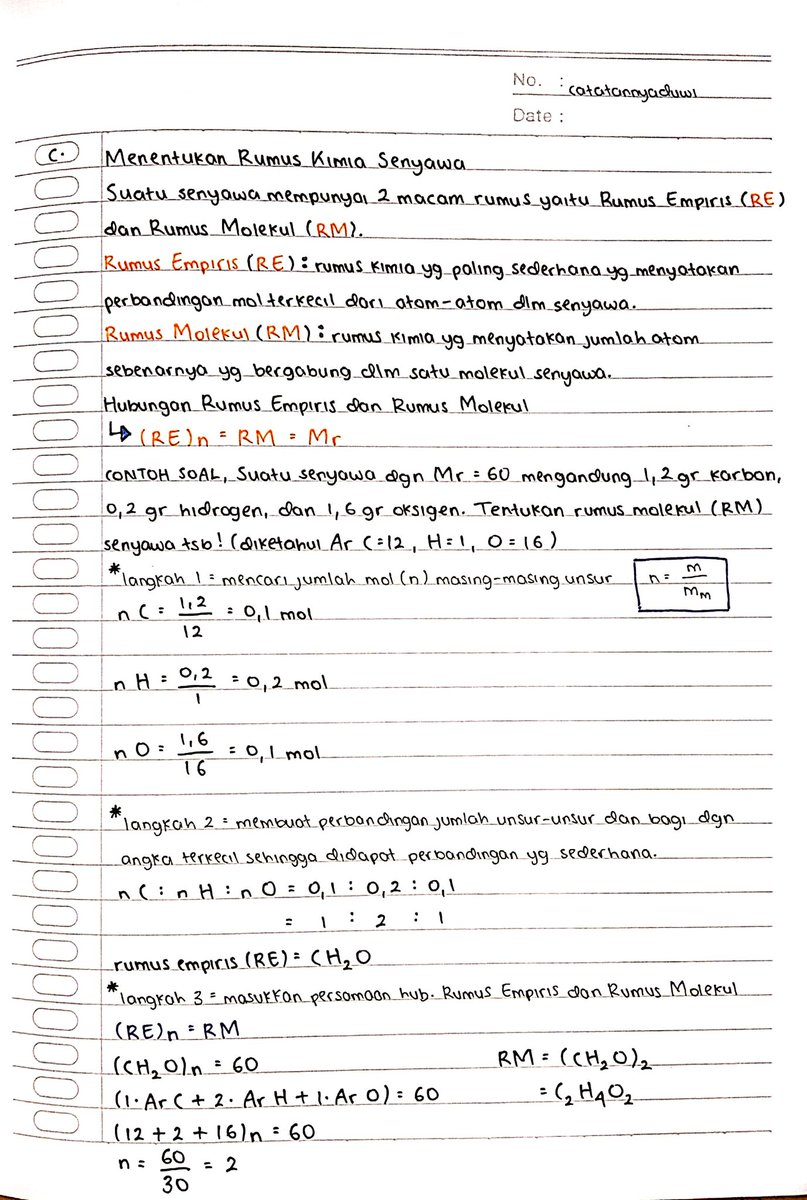 No. : catatannyaduwi
Date :
C. Menentukan Rumus Kimia Senyawa
Suatu senyawa mempunyai 2 macam rumus yaitu Rumus Empiris (RE)
dan Rumus Molekul (RM).
Rumus Empiris (RE) : rumus kimia yg paling sederhana yg menyatakan
perbandingan mol terkecil dari atom-atom dlm senyawa.
Rumus Molekul (RM) : rumus kimia yg menyatakan jumlah atom
sebenarnya yg bergabung dlm satu molekul senyawa.
Hubungan Rumus Empiris dan Rumus Molekul
↳ (RE)n = RM = Mr
CONTOH SOAL, Suatu senyawa dgn Mr = 60 mengandung 1,2 gr karbon,
0,2 gr hidrogen, dan 1,6 gr oksigen. Tentukan rumus molekul (RM)
senyawa tsb! (diketahui Ar C=12, H=1, O=16)
*langkah 1 = mencari jumlah mol (n) masing-masing unsur n = m/Mm
n C = 1,2/12 = 0,1 mol
n H = 0,2/1 = 0,2 mol
n O = 1,6/16 = 0,1 mol
*langkah 2 = membuat perbandingan jumlah unsur-unsur dan bagi dgn
angka terkecil sehingga didapat perbandingan yg sederhana.
n C : n H : n O = 0,1 : 0,2 : 0,1
= 1 : 2 : 1
rumus empiris (RE) = CH₂O
*langkah 3 = masukkan persamaan hub. Rumus Empiris dan Rumus Molekul
(RE)n = RM
(CH₂O)n = 60 RM = (CH₂O)₂
(1. Ar C + 2. Ar H + 1. Ar O) = 60 = C₂H₄O₂
(12 + 2 + 16)n = 60
n = 60/30 = 2